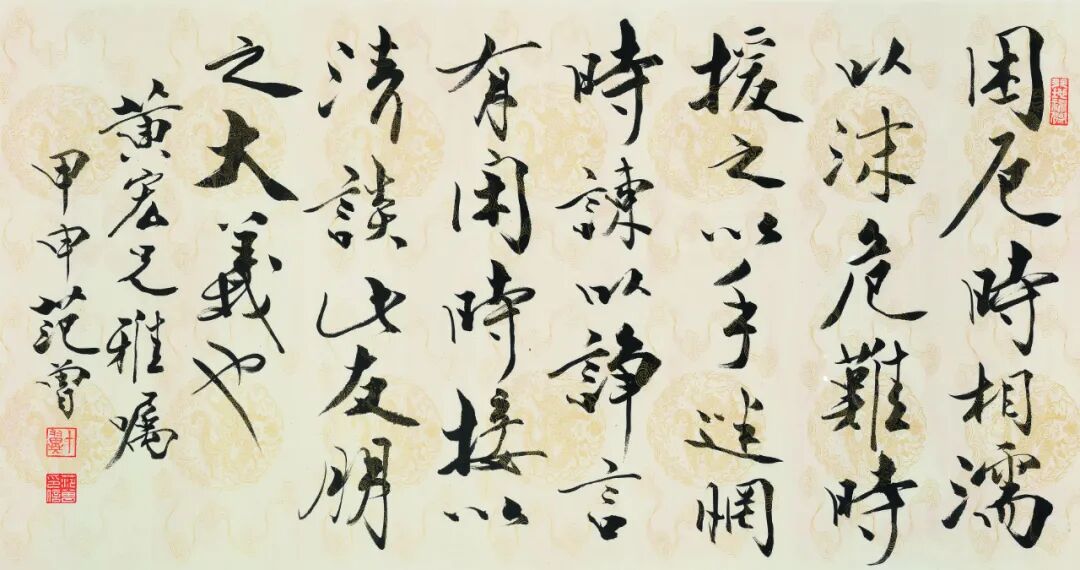 困厄時相濡
以沫危難時
援之以手迷惘
時諫以諍言
有闲時接以
清談此友朋
之大義也
黄宏兄雅嘱
甲申范曾